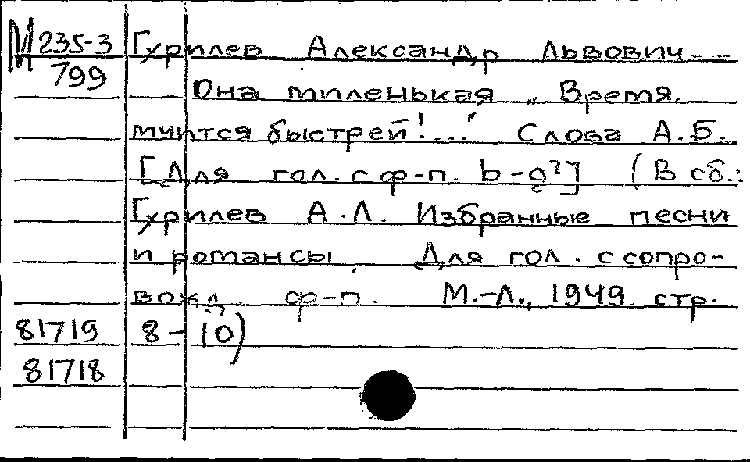 М 235-3 Гурилев Александр Львович
799 Она миленькая „Время
мчится быстрей!..." Слова А.Б.
[Для гол. с ф-п. b-g²] (В сб.:
Гурилев А.Л. Избранные песни
и романсы. Для гол. с сопро-
вожд. ф-п. М.-Л., 1949 стр.
81719 8-10)
81718